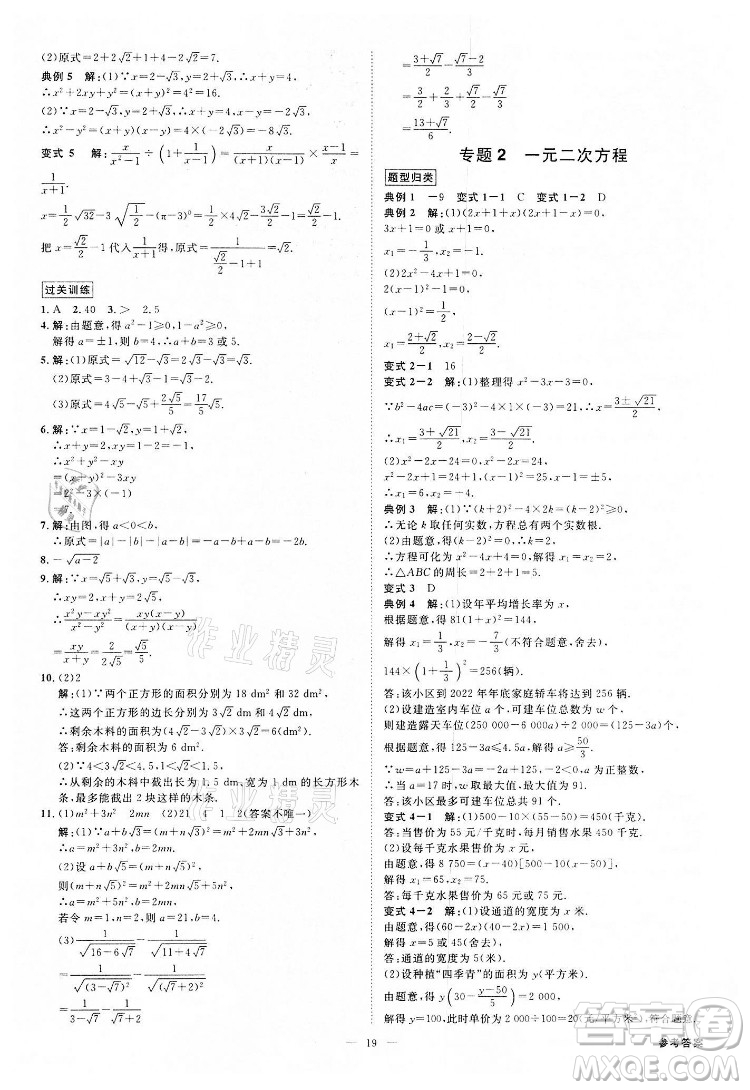 (2)原式=2+2√2+1+4-√2=7+√2.
典例 5 解:(1)∵x=2-√3,y=2+√3,
∴x²+2xy+y²=(x+y)²=4²=16.
(2)∵x=2-√3,y=2+√3,
∴x²-y²=(x+y)(x-y)=4×(-2√3)=-8√3.
变式 5 解:x/(x²-1)÷(1+1/(x-1))=x/((x+1)(x-1))×(x-1)/x=
1/(x+1).
x=1/2√32-3√(1/2)-(π-3)⁰=2√2-3√2/2-1=√2/2-1.
把 x=√2/2-1代入1/(x+1),得:原式=1/(√2/2-1+1)=√2.
过关训练
1. A 2. 40 3. > 2.5
4. 解:由题意,得 a²-1≥0,1-a²≥0,
解得 a=±1,则 b=4,∴a+b=5 或 3.
5. 解:(1)原式=√12-√3=2√3-√3=√3.
(2)原式=√6-√3+√3=√6.
(3)原式=4√5-√5+2√5/5=17/5√5.
6. 解:∵x+y=√2,xy=√3-√2,
∴x²+y²-xy
=(x+y)²-3xy
=2-3×
7. 解:由图,得 a<0<b,
∴原式=|a|-|b|-|a-b|=-a-b+a-b=-2b.
8. -√(a-2)
9. 解:∵x=√5+√3,y=√5-√3,
∴xy=2,x-y=2√3,
(x²y-xy²)/(x²-y²)=xy(x-y)/((x+y)(x-y))
=xy/(x+y)=2/(2√5)=√5/5.
10. (2)2
解:(1)∵两个正方形的面积分别为 18 dm² 和 32 dm²,
∴这两个正方形的边长分别为 3√2 dm 和 4√2 dm,
∴剩余木料的面积为(4√2-3√2)×3√2=6(dm²).
答:剩余木料的面积为 6 dm².
(2)∵4<3√2<4.5,1<√2<2,
∴从剩余的木料中截出长为1.5 dm,宽为 1 dm的长方形木
条,最多能截出 2 块这样的木条.
11. (1)m²+3n² 2mn (2)21 4 1 2(答案不唯一)
解:(1)∵a+b√3=(m+n√3)²=m²+3n²+2mn√3,
∴a=m²+3n²,b=2mn.
(2)设 a+b√5=(m+n√5)²,
则(m+n√5)²=m²+5n²+2mn√5,
∴a=m²+5n²,b=2mn,
若令 m=1,n=2,则 a=21,b=4.
(3)1/√(16-6√7)-1/√(11+4√7)
=1/√((3-√7)²)-1/√((2+√7)²)
=1/(3-√7)-1/(2+√7)
=(3+√7)/2-(√7-2)/3
=3/2+√7/2-√7/3+2/3
=(13+√7)/6.
专题 2 一元二次方程
题型归类
典例 1 -9 变式 1-1 C 变式 1-2 D
典例 2 解:(1)(2x+1+x)(2x+1-x)=0,
3x+1=0或x+1=0,
x₁=-1/3,x₂=-1.
(2)2x²-4x+1=0,
2(x-1)²=1,
(x-1)²=1/2,
x₁=(2+√2)/2,x₂=(2-√2)/2.
变式 2-1 16
变式 2-2 解:(1)整理得 x²-3x-3=0,
∵b²-4ac=(-3)²-4×1×(-3)=21>0,∴x=(3±√21)/2,
∴x₁=(3+√21)/2,x₂=(3-√21)/2.
(2)x²-2x-24=0,x²-2x=24,
x²-2x+1=24+1,(x-1)²=25,x-1=±5,
x₁=6,x₂=-4.
典例 3 解:(1)∵Δ=(k+2)²-4×2k=(k-2)²≥0,
∴无论 k 取任何实数,方程总有两个实数根.
(2)由题意,得(k-2)²=0,解得 k=2,
∴方程可化为 x²-4x+4=0,解得 x₁=x₂=2,
∴△ABC 的周长=2+2+1=5.
变式 3 D
典例 4 解:(1)设年平均增长率为 x,
根据题意,得 81(x+1)²=144,
解得 x₁=1/3,x₂=-7/3(不符合题意,舍去),
144×(1+1/3)²=256(辆).
答:该小区到 2022 年年底家庭轿车将达到 256 辆.
(2)设建造室内车位 a 个,可建车位总数为 w 个,
则建造露天车位(250 000-6 000a)÷2 000=(125-3a)个,
根据题意,得 2a≤125-3a≤4.5a,解得 a≥50/3,
∵w=a+125-3a=125-2a,
∴当 a=17 时,w最大=91.
答:该小区最多可建车位总共 91 个.
变式 4-1 解:(1)500-10×(55-50)=450(千克).
答:当售价为 55 元/千克时,每月销售水果 450 千克.
(2)设每千克水果售价为 x 元,
由题意,得 8 750=(x-40)[500-10(x-50)],
解得 x₁=65,x₂=75.
答:每千克水果售价为 65 元或 75 元.
变式 4-2 解:(1)设通道的宽度为 x 米.
由题意,得(60-2x)(40-2x)=1 500,
解得 x=5 或 45(舍去).
答:通道的宽度为 5(米).
(2)设种植“四季青”的面积为 y(平方米).
由题意,得 y(30-(y-50)/5)=2 000,
解得 y=100,此时单价为 2000÷100=20(元/平方米),符合题意.
19
参考答案
作业精灵
作业精灵
答案圈
MXQE.COM